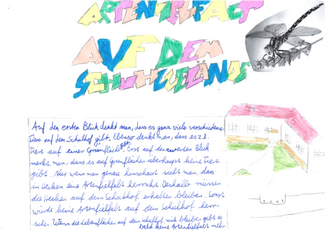 ARTENVIELFALT
AUF DEM
SCHULGELÄNDE
Auf den ersten Blick denkt man, dass es ganz viele verschiedene
Tiere auf dem Schulhof gibt. Ebenso denkt man, dass es z.B.
Tiere auf einer Grünfläche gibt. Erst auf den zweiten Blick
merkt man, dass es auf Grünflächen überhaupt keine Tiere
gibt. Nur wenn man genau hinschaut sieht man, dass
in Hecken eine Artenvielfalt herrscht. Deshalb müssen
die Hecken auf dem Schulhof erhalten bleiben. Sonst
würde keine Artenvielfalt auf dem Schulhof herr-
schen. Wenn die so bleiben gibt es
bald keine Artenvielfalt mehr